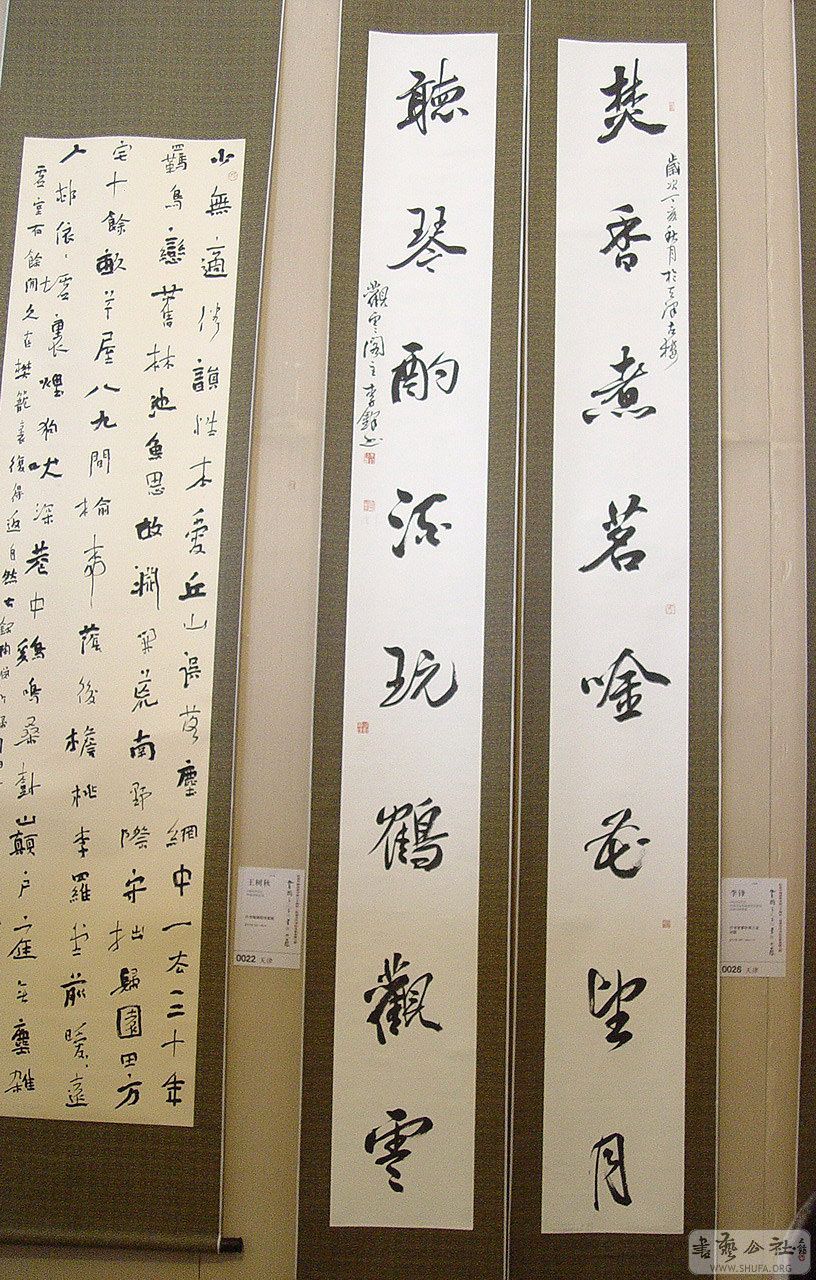 焚香煮茗唫花望月
歲次丁亥秋月於天津古樓
聽琴酌酒玩鶴觀雲
觀雲閣主李鋒书
少無適俗韻性本愛丘山誤落塵網中一去三十年
羈鳥戀舊林池魚思故淵開荒南野際守拙歸園田方
宅十餘畝草屋八九間榆柳蔭後檐桃李羅堂前曖曖遠
人邨依依墟裏煙狗吠深巷中鷄鳴桑樹山顛户庭無塵雜
虚室有餘閒久在樊籠裏復得返自然
王树秋
0022 天津
李锋
0026 天津
書藝公社
WWW.SHUFA.ORG